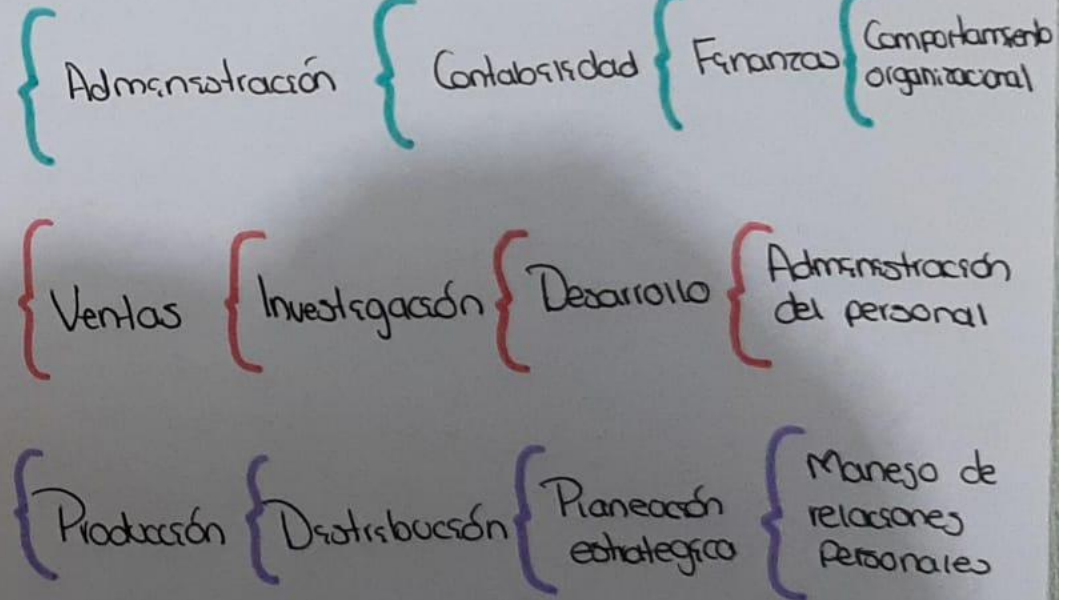 Administración Contabilidad Finanzas Comportamiento
organizacional
Ventas Investigación Desarrollo Administración
del personal
Producción Distribución Planeación
estrategico
Manejo de
relaciones
Personales